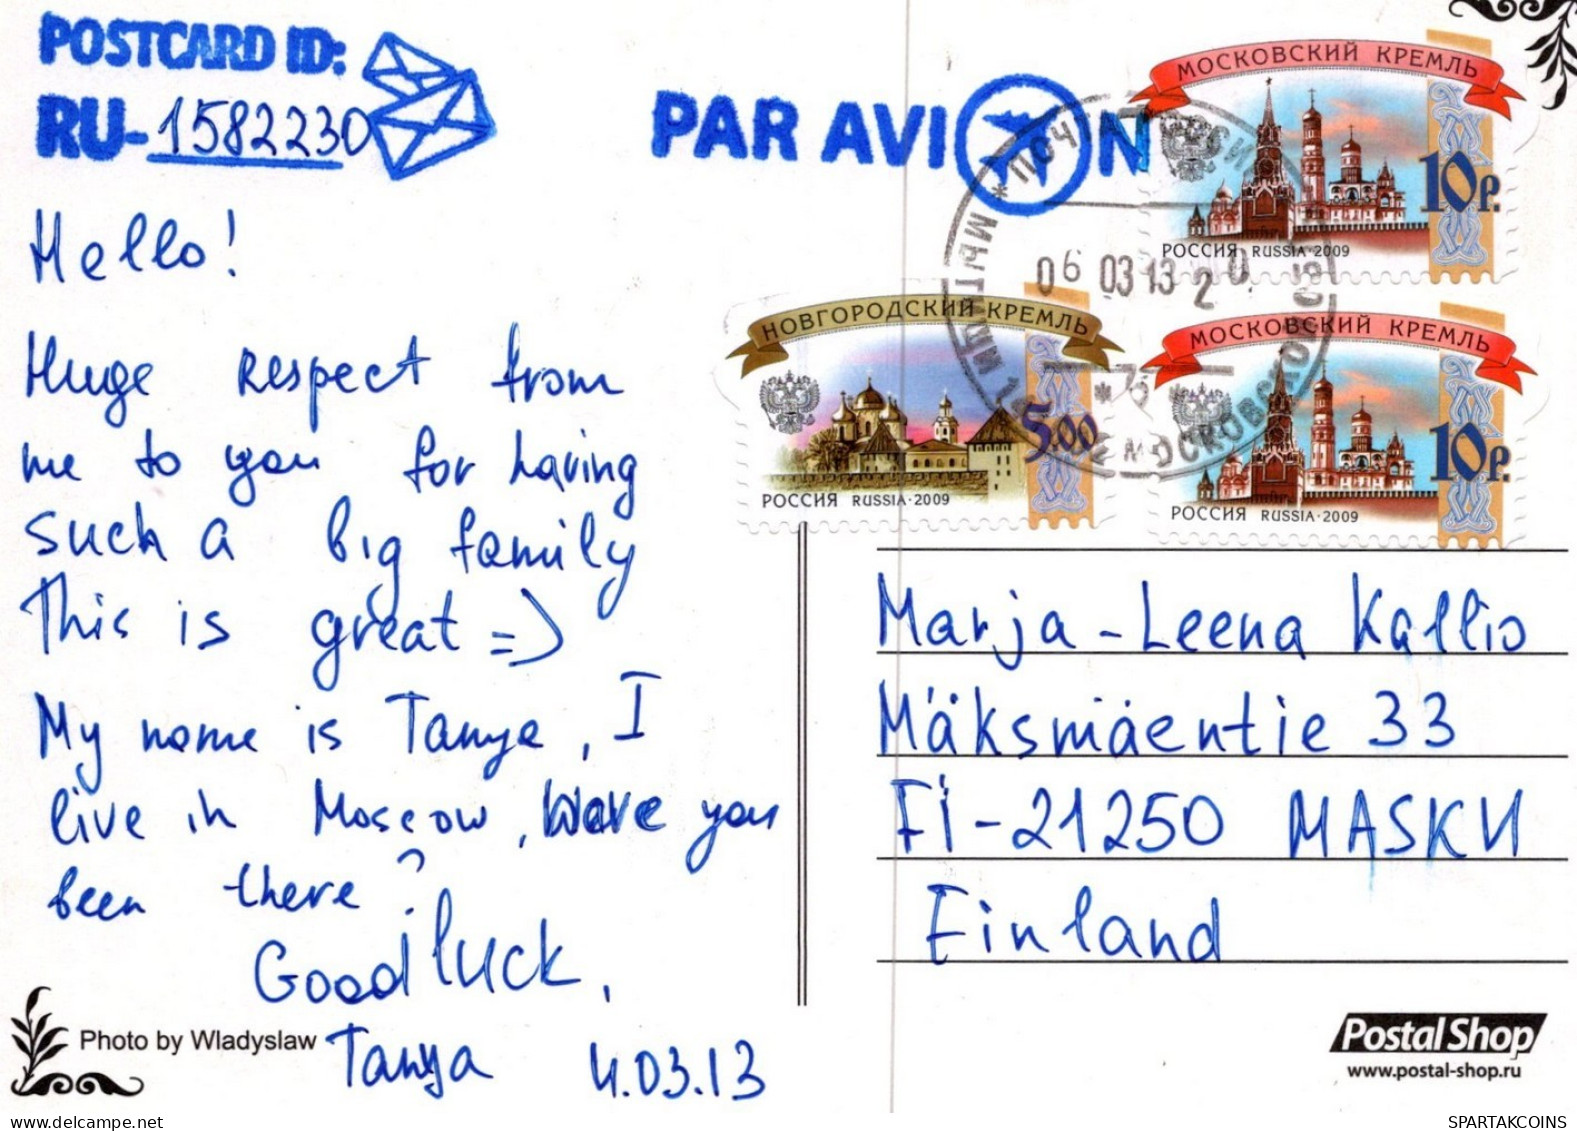 POSTCARD ID:
RU-1582230
PAR AVION
Hello!
Huge respect from
me to you for having
such a big family
This is great =)
My name is Tanya, I
live in Moscow, have you
been there?
Good luck,
Tanya 4.03.13
Photo by Wladyslaw
МОСКОВСКИЙ КРЕМЛЬ
10р.
РОССИЯ RUSSIA·2009
НОВГОРОДСКИЙ КРЕМЛЬ
5.00
РОССИЯ RUSSIA·2009
МОСКОВСКИЙ КРЕМЛЬ
10р.
РОССИЯ RUSSIA·2009
06 03 13 20
Marja-Leena Kallio
Mäksmäentie 33
FI-21250 MASKU
Finland
Postal Shop
www.postal-shop.ru
SPARTAKCOINS